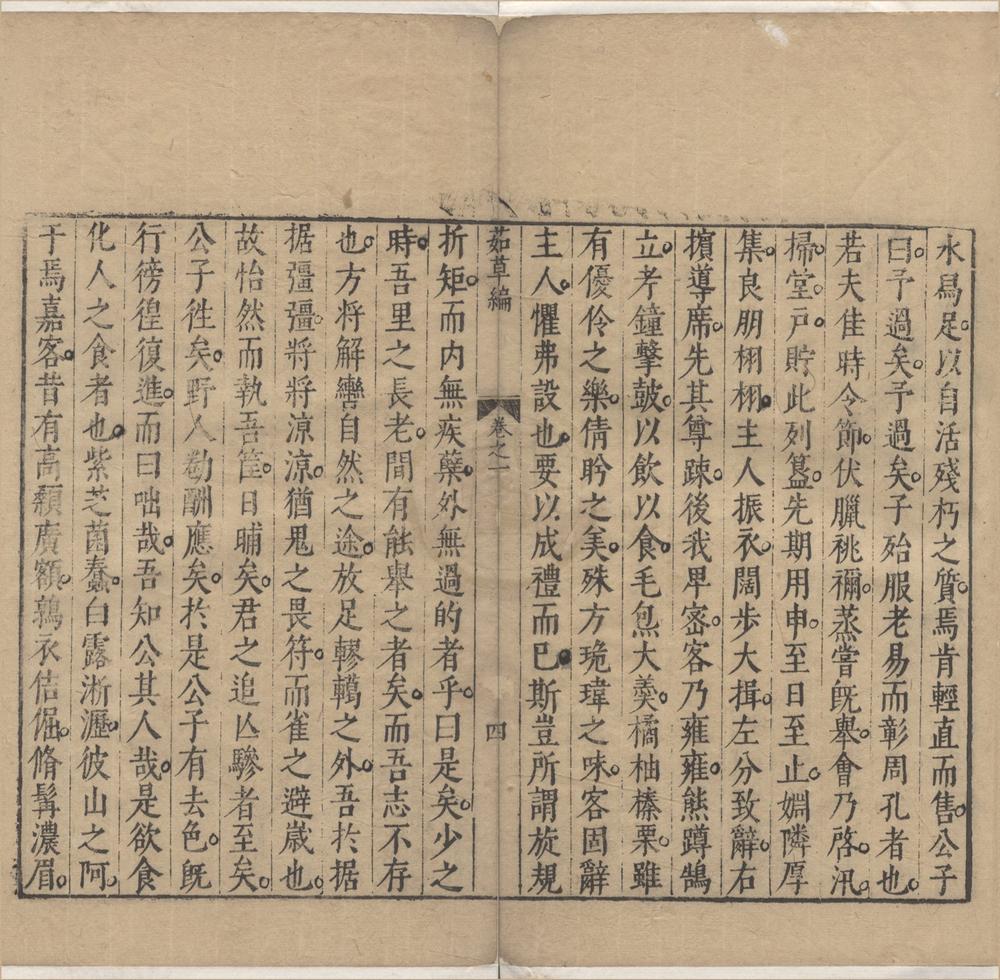 水爲足。以自活殘朽之質。焉肯輕直而售。公子
曰。予過矣。予過矣。子殆服老易而彰周孔者也。
若夫佳時令節。伏臘祧禰。蒸嘗既舉。會乃啓。汛
掃堂。戸貯此列簋。先期用申。至日至止。婣隣厚
集。良朋栩栩。主人振衣。闊步大揖。左分致辭。右
擯導席。先其尊踈。後我卑宻。客乃雍雍。熊蹲鵠
立。考鐘擊皷。以飲以食。毛炰大羹。橘柚榛栗。雖
有優伶之樂。倩盻之美。殊方瑰瑋之味。客固辭
主人。懼弗設也。要以成禮而已。斯豈所謂旋規
茹草編
卷之一
四
折矩。而内無疾蘖。外無過的者乎。曰是矣。少之
時。吾里之長老。間有能舉之者矣。而吾志不存
也。方將解轡自然之途。放足轇轕之外。吾於据
据彊彊。將將涼涼。猶鬼之畏符。而雀之避歲也。
故怡然而執吾筐。日晡矣。君之追亾驂者至矣。
公子徃矣。野人勌酬應矣。於是公子有去色。旣
行徬徨復進。而曰咄哉。吾知公其人哉。是欲食
化人之食者也。紫芝菌蠢。白露淅瀝。彼山之阿。
于焉嘉客。昔有高顙廣額。鶉衣佶倔。脩髯濃眉。